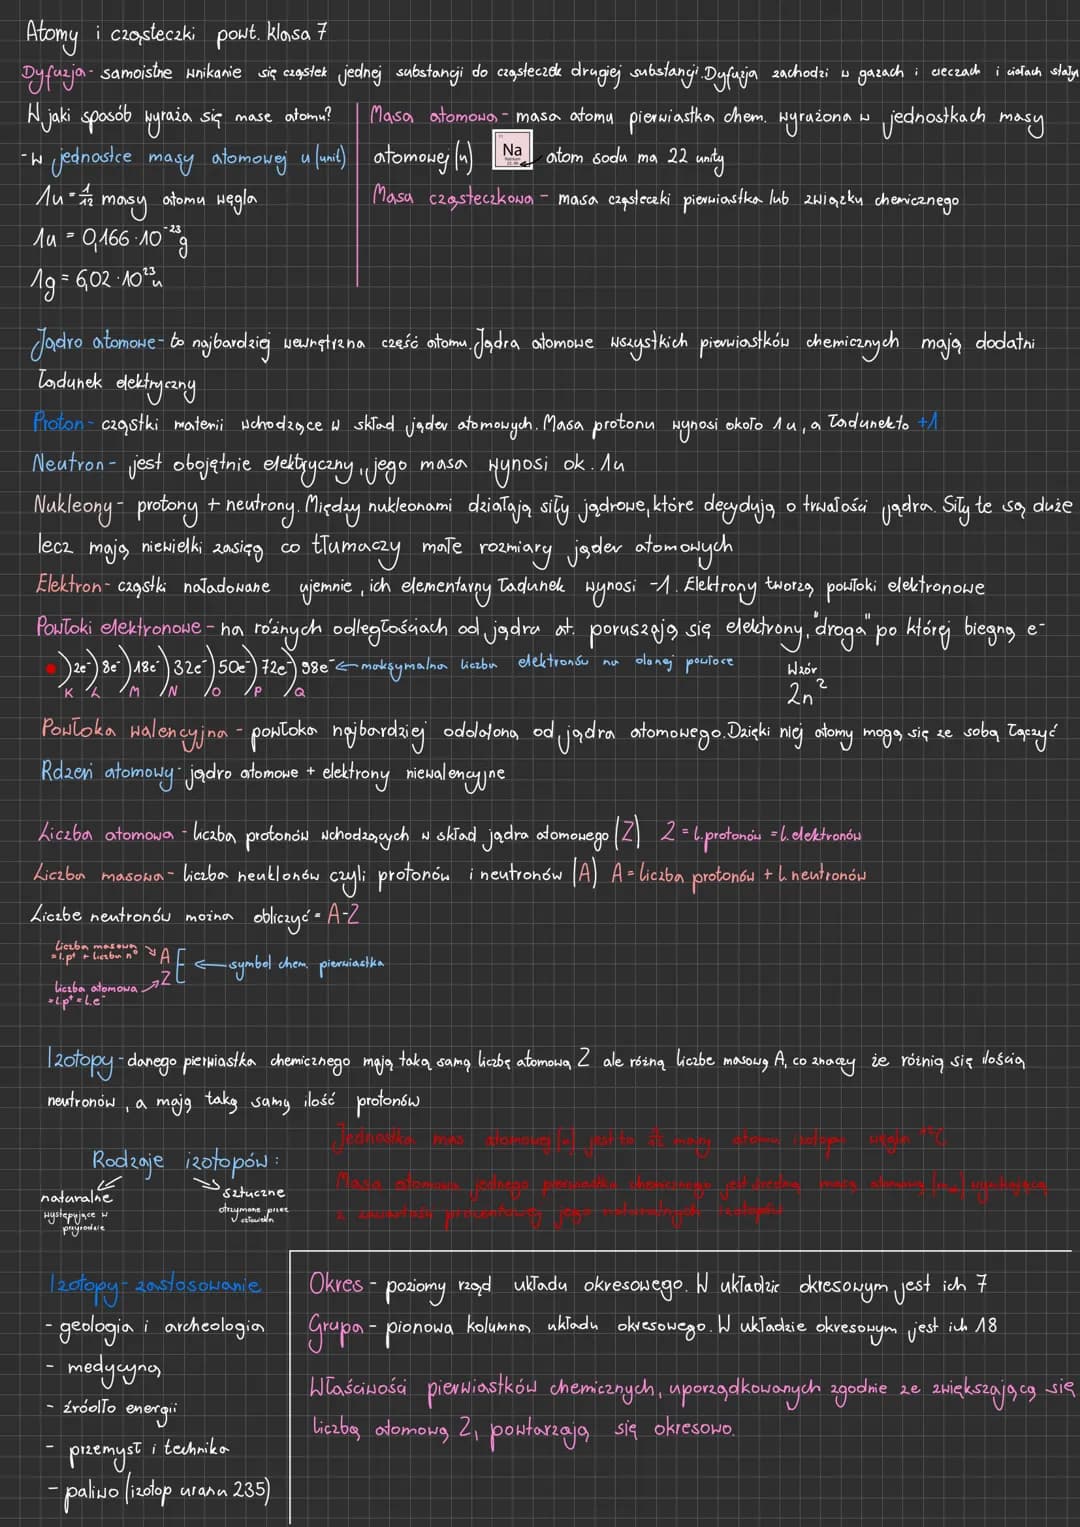 Atomy i cząsteczki powt. klasa 7
Dyfuzja - samoistne wnikanie się cząstek jednej substancji do cząsteczek drugiej substancji. Dyfuzja zachodzi w gazach i cieczach i ciałach stały
W jaki sposób wyraża się mase atomu?
- w jednostce masy atomowej u (unit)
1u = 1/12 masy atomu węgla
1u = 0,166 · 10⁻²³g
1g = 6,02 · 10²³u
Masa atomowa - masa atomu pierwiastka chem. wyrażona w jednostkach masy
atomowej (u) Na atom sodu ma 22 unity
Masa cząsteczkowa - masa cząsteczki pierwiastka lub związku chemicznego
Jądro atomowe - to najbardziej wewnętrzna część atomu. Jądra atomowe wszystkich pierwiastków chemicznych mają dodatni
ładunek elektryczny
Proton - cząstki materii wchodzące w skład jąder atomowych. Masa protonu wynosi około 1u, a ładunek to +1
Neutron - jest obojętnie elektryczny, jego masa wynosi ok. 1u
Nukleony - protony + neutrony. Między nukleonami działają siły jądrowe, które decydują o trwałości jądra. Siły te są duże
lecz mają niewielki zasięg co tłumaczy małe rozmiary jąder atomowych
Elektron - cząstki naładowane ujemnie, ich elementarny ładunek wynosi -1. Elektrony tworzą powłoki elektronowe
Powłoki elektronowe - na różnych odległościach od jądra at. poruszają się elektrony, "droga" po której biegną e-
2e⁻) 8e⁻) 18e⁻) 32e⁻) 50e⁻) 72e⁻) 98e⁻ ← maksymalna liczba elektronów na danej powłoce
K L M N O P Q
Wzór
2n²
Powłoka walencyjna - powłoka najbardziej oddalona od jądra atomowego. Dzięki niej atomy mogą się ze sobą łączyć
Rdzeń atomowy - jądro atomowe + elektrony niewalencyjne
Liczba atomowa - liczba protonów wchodzących w skład jądra atomowego (Z) Z = l. protonów = l. elektronów
Liczba masowa - liczba neuklonów czyli protonów i neutronów (A) A = liczba protonów + l. neutronów
Liczbe neutronów można obliczyć = A-Z
liczba masowa
= l.p⁺ + liczba n⁰ A
E ← symbol chem. pierwiastka
liczba atomowa Z
= l.p⁺ = l.e⁻
Izotopy - danego pierwiastka chemicznego mają taką samą liczbę atomową Z ale różną liczbe masową A, co znaczy że różnią się ilością
neutronów, a mają taką samą ilość protonów
Jednostka mas atomowej (u) jest to 1/12 masy atomu izotopu węgla ¹²C
Masa atomowa jednego pierwiastka chemicznego jest średnią masą atomową
z zawartości procentowej jego naturalnych izotopów
Rodzaje izotopów:
naturalne
występujące w
przyrodzie
sztuczne
otrzymane przez
człowieka
Izotopy - zastosowanie
- geologia i archeologia
- medycyna
- źródło energii
- przemysł i technika
- paliwo (izotop uranu 235)
Okres - poziomy rząd układu okresowego. W układzie okresowym jest ich 7
Grupa - pionowa kolumna układu okresowego. W układzie okresowym jest ich 18
Właściwości pierwiastków chemicznych, uporządkowanych zgodnie ze zwiększającą się
liczbą atomową Z, powtarzają się okresowo.